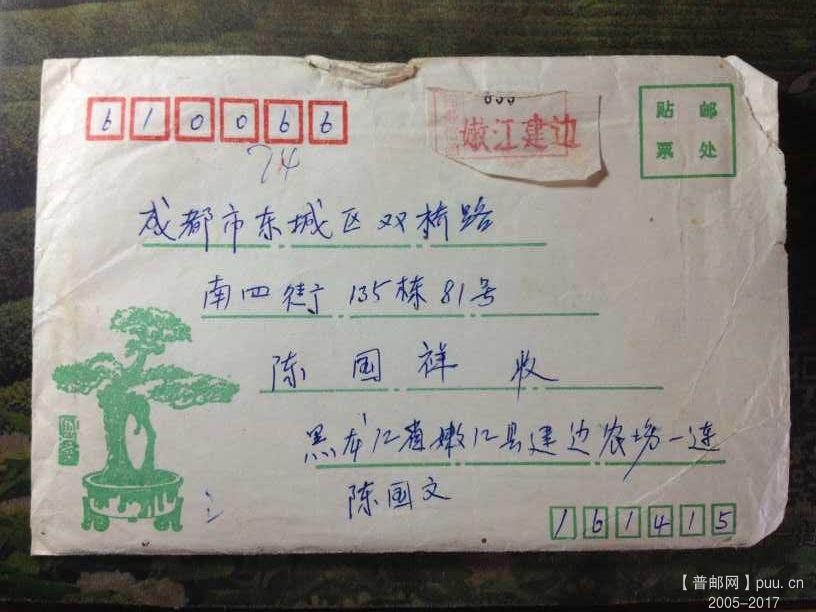 610066
嫩江建边
贴邮
票处
74
成都市东城区双桥路
南四街135栋81号
陈国祥收
黑龙江省嫩江县建边农场一连
陈国文
161415
【普邮网】puu.cn
2005-2017